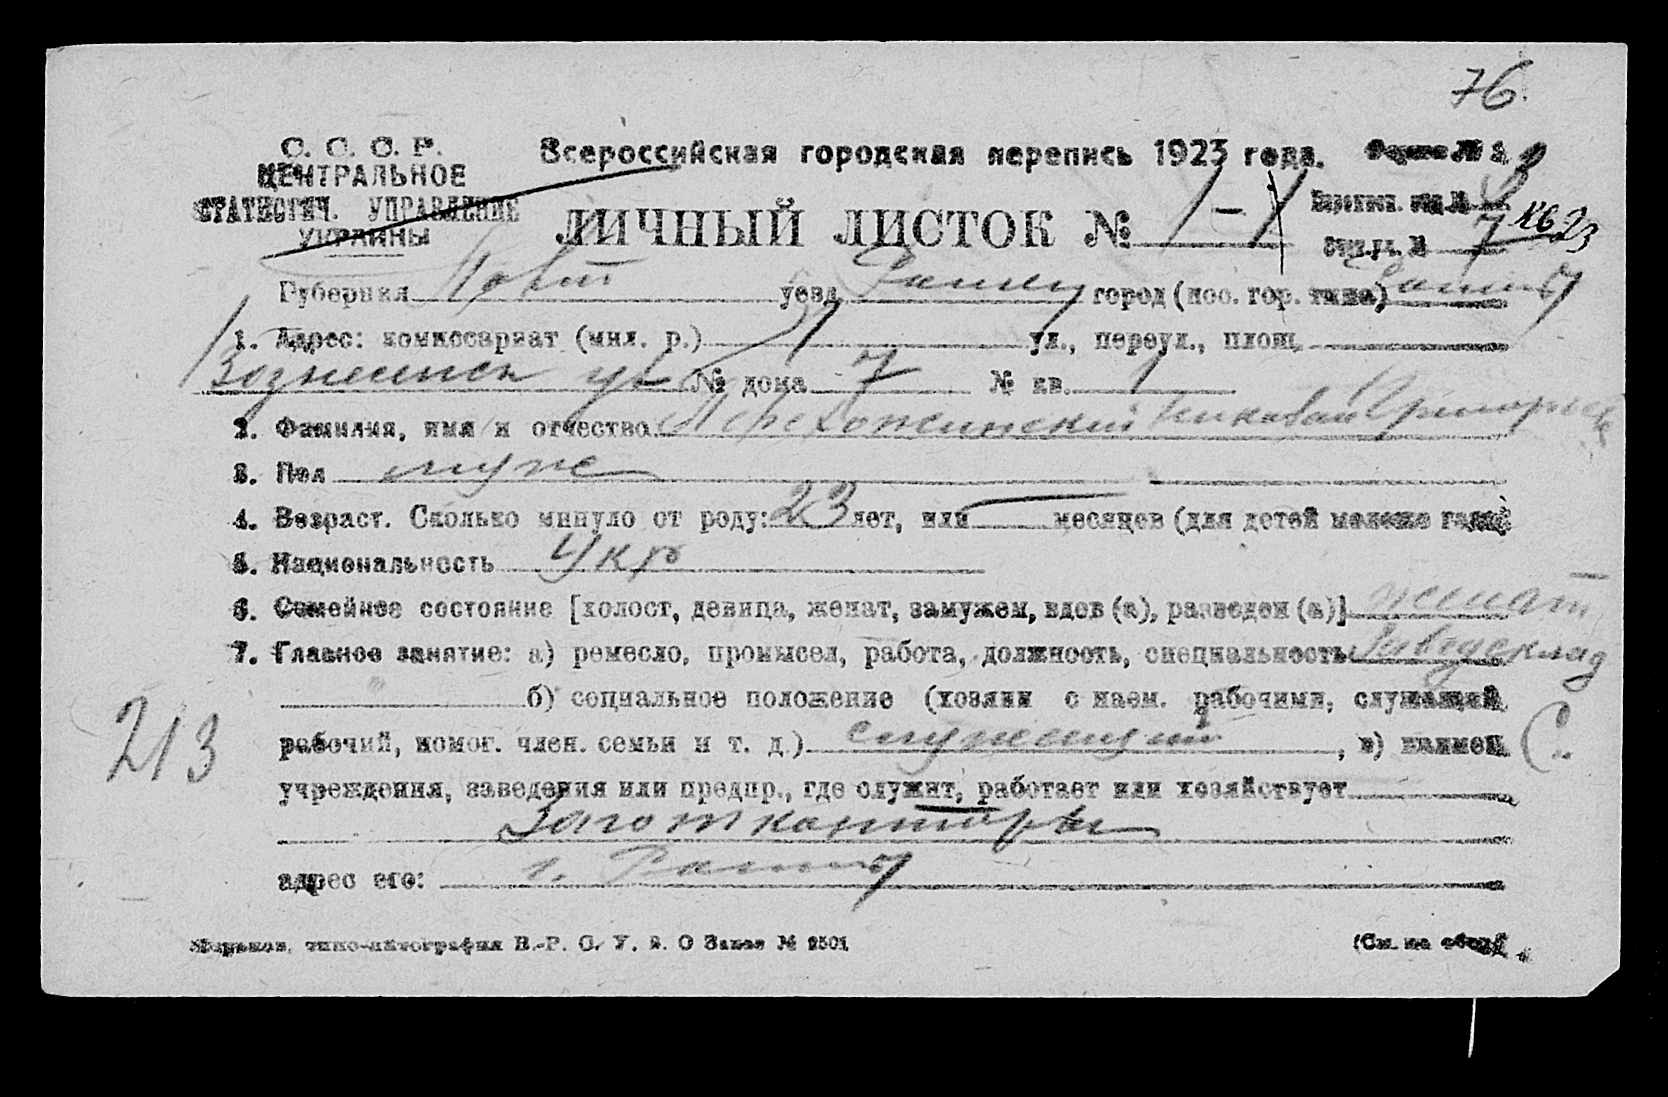 76.
С. С. С. Р.
ЦЕНТРАЛЬНОЕ
СТАТИСТИЧ. УПРАВЛЕНИЕ
УКРАИНЫ
Всероссийская городская перепись 1923 года.
Форма № 2
ЛИЧНЫЙ ЛИСТОК № 1-1
Переписн. отд. №
Счетн. уч. № 7 кв 23
Губерния Полт уезд Ромен город (пос. гор. типа) Ромны
1. Адрес: комиссариат (мил. р.) 1 ул., переул., площ.
Вознесенск ул № дома 7 № кв. 1
2. Фамилия, имя и отчество Перехожинский Николай Григорьев
3. Пол муж
4. Возраст. Сколько минуло от роду: 23 лет, или — месяцев (для детей моложе года)
5. Национальность Укр
6. Семейное состояние [холост, девица, женат, замужем, вдов (а), разведен (а)] женат
7. Главное занятие: а) ремесло, промысел, работа, должность, специальность Завед склад
б) социальное положение (хозяин с наем. рабочими, служащий
213
рабочий, помог. член. семьи и т. д.) служащий, в) наимен
учреждения, заведения или предпр., где служит, работает или хозяйствует
Заготконторы
адрес его: г. Ромны
Харьков, типо-литография В.-Р. С. У. В. О Заказ № 2501
(См. на обор.